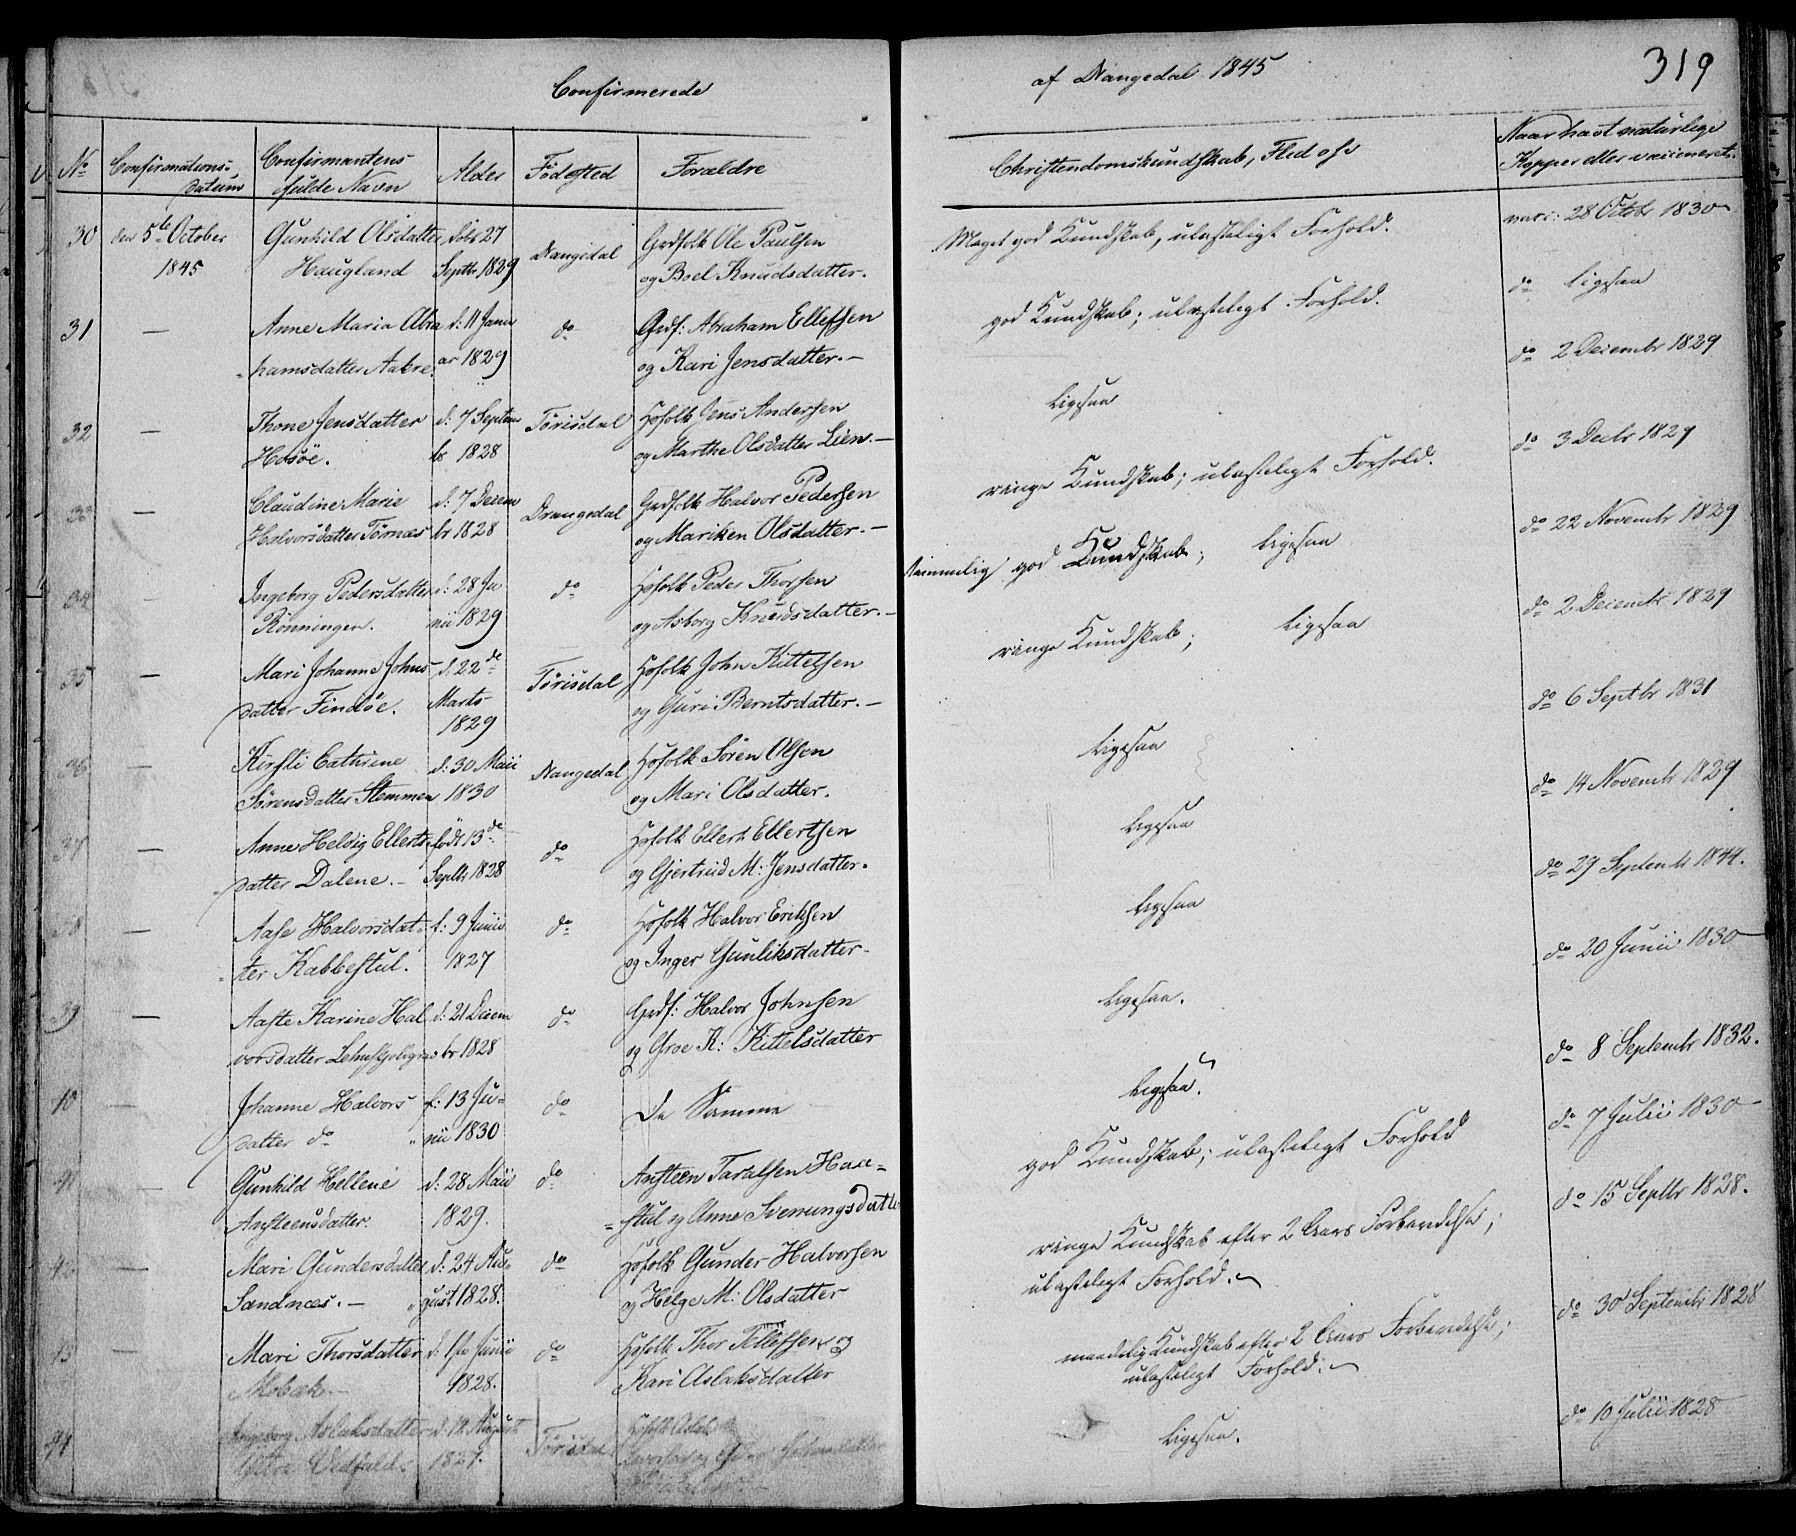 Confirmerede
af Drangedal 1845
319
No Confirmations-datum Confirmantens fulde Navn Alder Födested Forældre Christendomskundskab, Flid ofv Naar havt naturlige Kopper eller vaccineret
30 den 5te October 1845 Gunhild Olsdatter Haugland föbt 27 Septbr 1829 Drangedal Grdfolk Ole Paulsen og Boel Knudsdatter. Meget god Kundskab, ulasteligt Forhold. vacc: 28 Octbr 1830
31 — Anne Maria Abrahamsdatter Aakre. d: 11 Januar 1829 do Grdf: Abraham Ellefsen og Kari Jensdatter.— god Kundskab; ulasteligt Forhold. do ligesaa
32 — Thone Jensdatter Hosöe. d: 7 Septembr 1828 Törisdal Hsfolk Jens Andersen og Marthe Olsdatter Lien.— ligesaa do 2 Decembr 1829
33 — Claudine Marie Halvorsdatter Törnes d: 7 Decembr 1828 Drangedal Grdfolk Halvor Pedersen og Mariken Olsdatter.— ringe Kundskab; ulasteligt Forhold. do 3 Decbr 1829
34 — Ingeborg Pedersdatter Rönningen. d: 28 Junii 1829 do Hsfolk Peder Thorsen og Asborg Knudsdatter.— temmelig god Kundskab; ligesaa do 22 Novembr 1829
35 — Mari Johanne Johnsdatter Findöe. d: 22de Marts 1829 Törisdal Hsfolk John Kittelsen og Guri Berntsdatter.— ringe Kundskab; ligesaa do 2 Decembr 1829
36 — Kirsti Cathrine Sörensdatter Stemmen d: 30 Maii 1830 Drangedal Hsfolk Sören Olsen og Mari Olsdatter. ligesaa do 6 Septbr 1831
37 — Anne Helvig Ellertsdatter Dalene.— födt 13de Septbr 1828 do Hsfolk Ellert Ellertsen og Gjertrud M: Jensdatter. ligesaa do 14 Novembr 1829
38 — Aase Halvorsdatter Kabbestul. f: 9 Junii 1827 do Hsfolk Halvor Eriksen og Inger Gunliksdatter. ligesaa do 29 Septembr 1844.
39 — Aaste Karine Halvorsdatter d: 21 Decembr 1828 do Grdf: Halvor Johnsen og Groe K: Kittelsdatter ligesaa. do 20 Junii 1830
40 — Johanne Halvorsdatter do f: 13 Junii 1830 do De Samme ligesaa. do 8 Septembr 1832.
41 — Gunhild Hellene Ansteensdatter. d: 28 Maii 1829. do Ansteen Taralsen og Anne Svenungsdatter god Kundskab; ulasteligt Forhold do 7 Julii 1830
42 — Mari Gundersdatter Sandnæs.— d: 24 August 1828. do Hsfolk Gunder Halvorsen og Helge M: Olsdatter ringe Kundskab efter 2 Aars Forberedelse; ulasteligt Forhold. do 15 Septbr 1828.
43 — Mari Thorsdatter Mobæk.— d: 1ste Junii 1828. do Hsfolk Thor Tellefsen og Kari Aslaksdatter maadelig Kundskab efter 2 Aars Forberedelse; ulasteligt Forhold. do 30 Septembr 1828
44 Ingeborg Aslaksdatter Ytre Vedfald. d: 12 August 1827. Törisdal Hsfolk Aslak ligesaa. do 10 Julii 1828